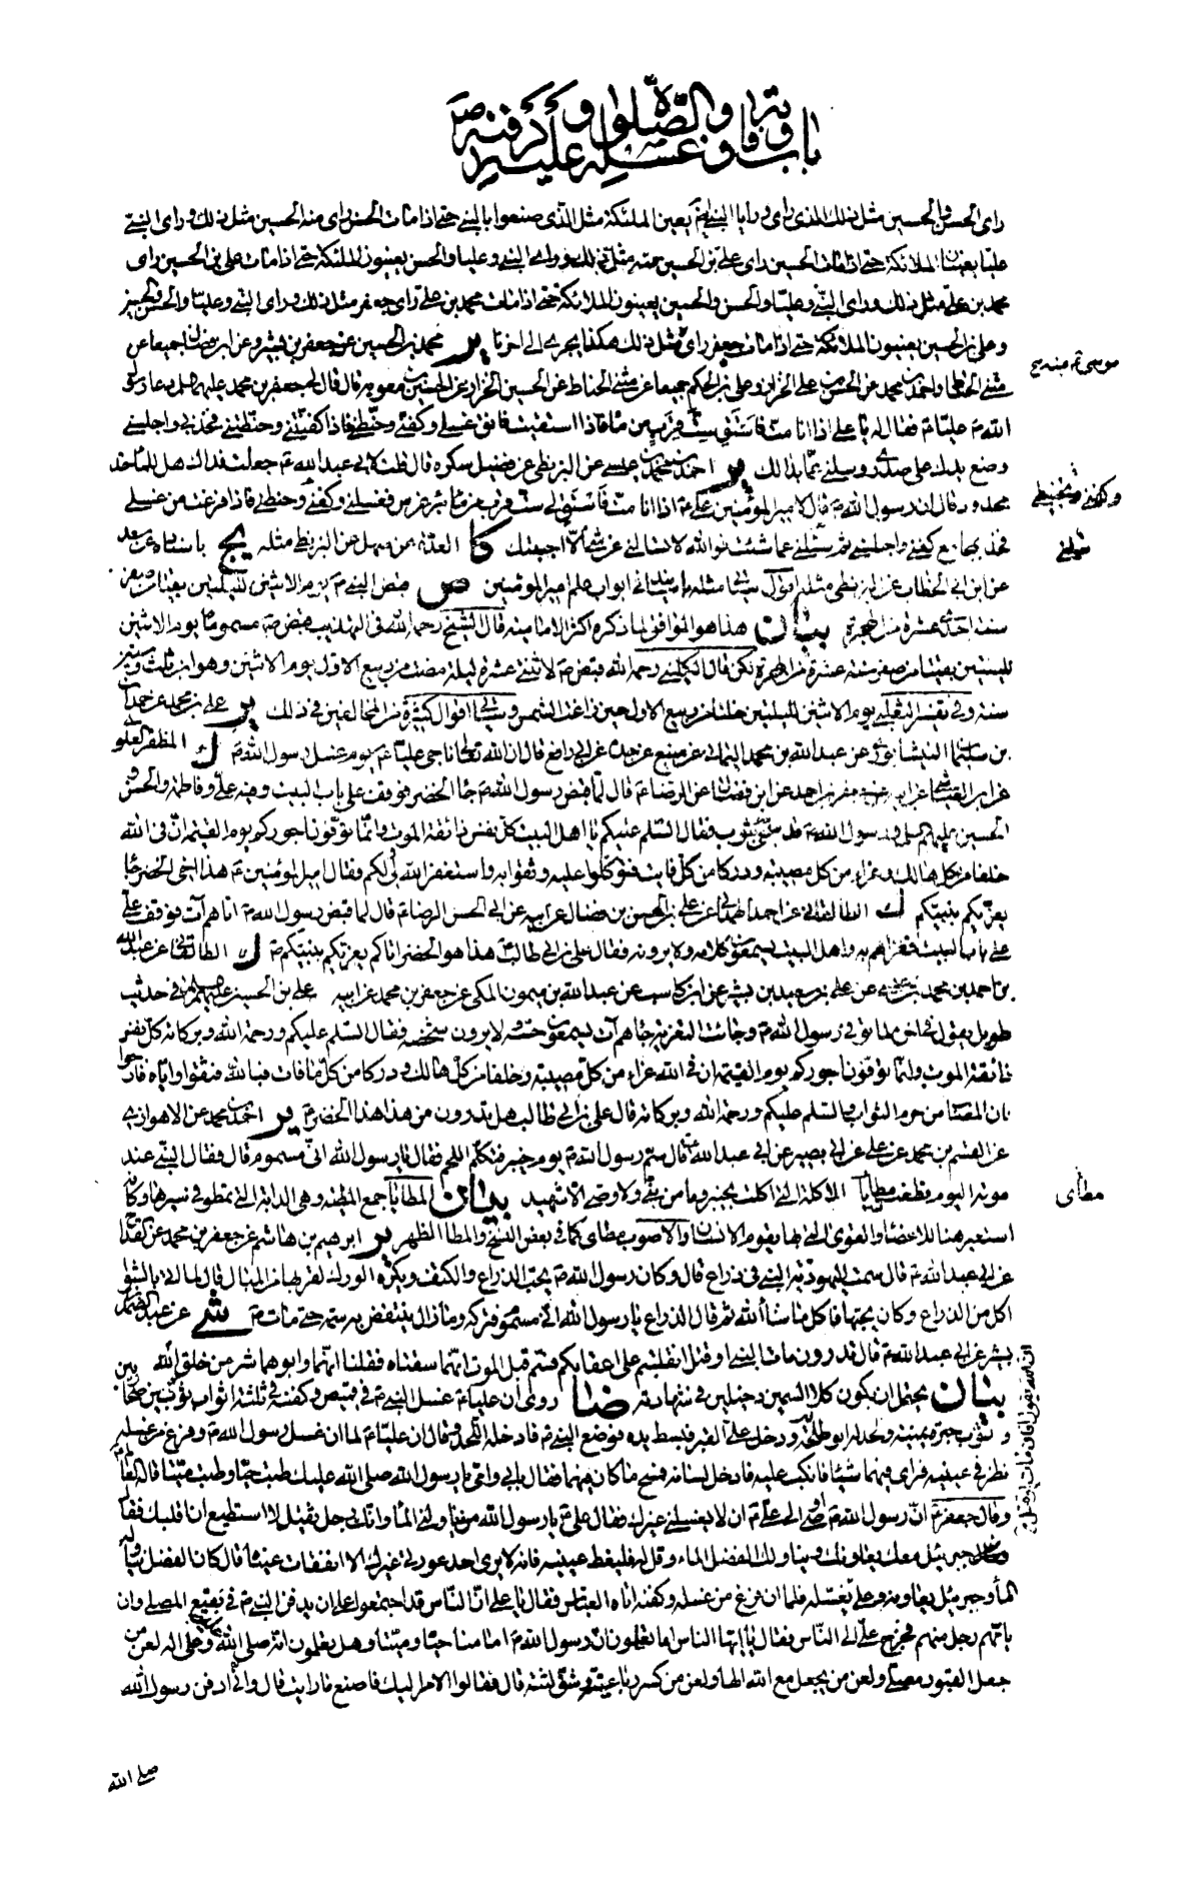 باب وفاته وغسله والصلوة عليه ودفنه ص
راى الحسن والحسين مثل ذلك الذى راى ورايا النبى ايضا يعين الملئكة مثل الذى صنعوا بالنبى حتى اذا مات الحسن راى منه الحسين مثل ذلك وراى النبى
عليا يعينان الملائكة حتى اذا مات الحسين راى على بن الحسين منه مثل ذلك وراى النبى وعليا والحسن يعينون الملئكة حتى اذا مات على بن الحسين راى
محمد بن على مثل ذلك وراى النبى وعليا والحسن والحسين يعينون الملائكة حتى اذا مات محمد بن على راى جعفر مثل ذلك وراى النبى وعليا والحسن والحسين
وعلى بن الحسين يعينون الملائكة حتى اذا مات جعفر راى موسى منه مثل ذلك هكذا يجرى الى اخرنا ير محمد بن الحسين عن جعفر بن بشير وعن ابن فضال جميعا عن
مثنى الحناط واحمد بن محمد عن الحسن بن على الخزاز وعلى بن الحكم جميعا عن مثنى الحناط عن الحسين الخزاز عن الحسين بن معوية قال قال لى جعفر بن محمد عليهما دعا رسول
الله ص عليا ع فقال له يا على اذا انا مت فاستق ست قرب من ماء فاذا استقيت فانق غسلى وكفنى وحنطنى فاذا كفنتنى وحنطتنى فخذ بى واجلسنى
وضع يدك على صدرى وسلنى عما بدا لك ير احمد بن محمد بن عيسى عن البزنطى عن فضيل سكره قال قلت لابى عبد الله ع جعلت فداك هل للماء حد
محدود قال ان رسول الله ص قال لامير المؤمنين على ع اذا انا مت فاستق لى ست قرب من ماء بئر غرس فغسلنى وكفنى وحنطنى فاذا فرغت من غسلى
وكفنى وتحنيطى فخذ بمجامع كفنى واجلسنى ثم سئلنى عما شئت فوالله لا تسالنى عن شئ الا اجبتك كا العدة عن سهل عن البزنطى مثله يج باسناده عن سعد
عن ابن ابى الخطاب عن البزنطى مثله اقول سياتى مثله باسانيد فى ابواب علم امير المؤمنين ص قبض النبى ص يوم الاثنين لليلتين بقيتا من صفر
سنة احدى عشرة من الهجرة بيان هذا هو الموافق لما ذكره اكثر الامامية قال الشيخ رحمه الله فى التهذيب قبض ص مسموما يوم الاثنين
لليلتين بقيتا من صفر سنة عشرة من الهجرة لكن قال الكلينى رحمه الله قبض ص لاثنتى عشرة ليلة مضت من ربيع الاول يوم الاثنين وهو ابن ثلث وستين
سنة وفى تفسير الثعلبى يوم الاثنين لليلتين خلتا من ربيع الاول حين زاغت الشمس وسياتى اقوال كثيرة من المخالفين فى ذلك ير على بن محمد عن حمدان
بن سليمان النيشابورى عن عبد الله بن محمد اليمانى عن منيع عن جده عن ابى رافع قال ان الله تعالى ناجى عليا ع يوم غسل رسول الله ص ك المظفر العلوى
عن ابن العياشى عن ابيه عن جعفر بن احمد عن ابن فضال عن الرضا ع قال لما قبض رسول الله ص جاء الخضر فوقف على باب البيت وفيه على وفاطمة والحسن و
الحسين عليهم السلم ورسول الله ص قد سجى بثوب فقال السلم عليكم يا اهل البيت كل نفس ذائقة الموت وانما توفون اجوركم يوم القيمة ان فى الله
خلفا من كل هالك وعزاء من كل مصيبة ودركا من كل فايت فتوكلوا عليه وثقوا به واستغفر الله لى ولكم فقال امير المؤمنين ع هذا اخى الخضر جاء
يعزيكم بنبيكم ك الطالقانى عن احمد الهمدانى عن على بن الحسن بن فضال عن ابيه عن ابى الحسن الرضا ع قال لما قبض رسول الله ص اتاهم آت فوقف على
باب البيت فعزاهم به واهل البيت يسمعون كلامه ولا يرونه فقال على بن ابى طالب ع هذا هو الخضر اتاكم يعزيكم بنبيكم ص ك الطالقانى عن عبد الله
بن احمد بن محمد بن عيسى عن على بن سعيد بن بشير عن ابن كاسب عن عبد الله بن ميمون المكى عن جعفر بن محمد عن ابيه عن على بن الحسين عليهم السلم فى حديث
طويل يقول فى اخره لما توفى رسول الله ص وجائت التعزية جاءهم آت يسمعون حسه ولا يرون شخصه فقال السلم عليكم ورحمة الله وبركاته كل نفس
ذائقة الموت وانما توفون اجوركم يوم القيمة ان فى الله عزاء من كل مصيبة وخلفا من كل هالك ودركا من كل ما فات فبالله فثقوا واياه فارجوا
فان المصاب من حرم الثواب والسلم عليكم ورحمة الله وبركاته قال على بن ابى طالب هل تدرون من هذا هذا الخضر ع ير احمد بن محمد عن الاهوازى
عن القسم بن محمد عن على عن ابى بصير عن ابى عبد الله ع قال سم رسول الله ص يوم خيبر فتكلم اللحم فقال يا رسول الله انى مسموم قال فقال النبى عند
موته اليوم قطعت مطاياى الاكلة التى اكلت بخيبر وما من نبى ولا وصى الا شهيد بيان المطايا جمع المطية وهى الدابة التى تمطو فى سيرها وكانه
استعير هنا للاعضاء والقوى التى بها يقوم الانسان والاصوب مطاى كما فى بعض النسخ والمطا الظهر ير ابرهيم بن هاشم عن جعفر بن محمد عن القداح
عن ابى عبد الله ع قال سمت اليهودية النبى فى ذراع قال وكان رسول الله ص يحب الذراع والكتف ويكره الورك لقربها من المبال قال لما اتى بالشواء
اكل من الذراع وكان يحبها فاكل ما شاء الله ثم قال الذراع يا رسول الله انى مسموم فتركه وما زال ينتفض به سمه حتى مات ص شى عن عبد الصمد بن
بشير عن ابى عبد الله ع قال تدرون مات النبى او قتل ان الله يقول افان مات او قتل انقلبتم على اعقابكم فسم قبل الموت انهما سقتاه فقلنا انهما وابوهما شر من خلق الله
بيان يحتمل ان يكون كلا السمين دخيلين فى شهادته ص ضا روى ان عليا ع غسل النبى ص فى قميص وكفنه فى ثلثة اثواب ثوبين صحاريين
وثوب حبرة يمنية ولحد له ابو طلحة ثم ودخل على القبر فبسط يده فوضع النبى ص فادخله اللحد وقال ان عليا ع لما ان غسل رسول الله ص وفرغ من غسله
نظر فى عينيه فراى فيهما شيئا فانكب عليه فادخل لسانه فمسح ما كان فيهما فقال بابى وامى يا رسول الله صلى الله عليك طبت حيا وطبت ميتا قاله العالم ع
وقال جعفر ع ان رسول الله ص اوصى الى على ع ان لا يغسلنى غيرك فقال على ع يا رسول الله من يناولنى الماء وانك رجل ثقيل لا استطيع ان اقلبك فقال
جبرئيل معك يعاونك ويناولك الفضل الماء وقل له فليغط عينيه فانه لا يرى احد عورتى غيرك الا انفقأت عيناه قال كان الفضل يناوله
الماء وجبرئيل يعاونه وعلى يغسله فلما ان فرغ من غسله وكفنه اتاه العباس فقال يا على ان الناس قد اجتمعوا على ان يدفن النبى ص فى بقيع المصلى وان
يامهم رجل منهم فخرج على الى الناس فقال يا ايها الناس اما تعلمون ان رسول الله ص امامنا حيا وميتا وهل تعلمون انه صلى الله عليه وعلى اله لعن من
جعل القبور مصلى ولعن من يجعل مع الله الها ولعن من كسر رباعيته وشق لثته قال فقالوا الامر اليك فاصنع ما رايت قال وانى ادفن رسول الله
صلى الله